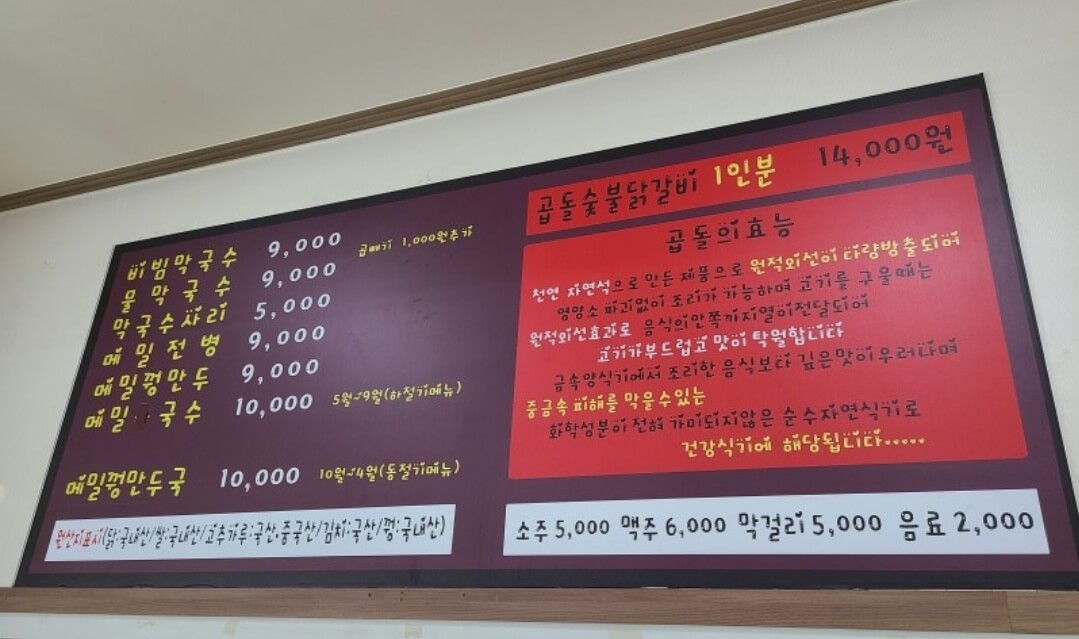 비빔막국수 9,000 곱빼기 1,000원추가
물막국수 9,000
막국수사리 5,000
메밀전병 9,000
메밀꿩만두 9,000
메밀 국수 10,000 5월~9월(하절기메뉴)
메밀꿩만두국 10,000 10월~4월(동절기메뉴)
원산지표시(닭:국내산/쌀:국내산/고추가루:국산,중국산/김치:국산/꿩:국내산)
곱돌숯불닭갈비 1인분 14,000원
곱돌의효능
천연 자연석으로 만든 제품으로 원적외선이 다량방출되어
영양소 파괴없이 조리가 가능하며 고기를 구울때는
원적외선효과로 음식의안쪽까지열이전달되어
고기가부드럽고 맛이 탁월합니다
금속양식기에서 조리한 음식보다 깊은맛이 우러나며
중금속 피해를 막을수있는
화학성분이 전혀 가미되지않은 순수자연식기로
건강식기에 해당됩니다.....
소주 5,000 맥주 6,000 막걸리 5,000 음료 2,000